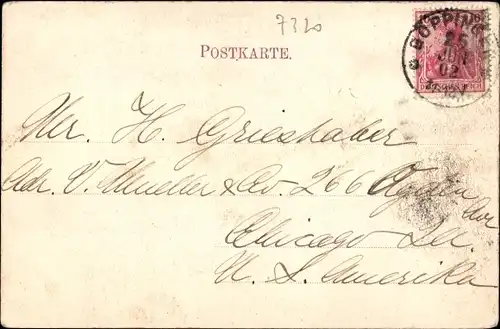 7320
POSTKARTE.
GÖPPING
25
JUN
02
Mr. H. Grieshaber
Adr. V. Mueller & Co. 266 Ogden
Ave
Chicago Ill.
U. S. Amerika